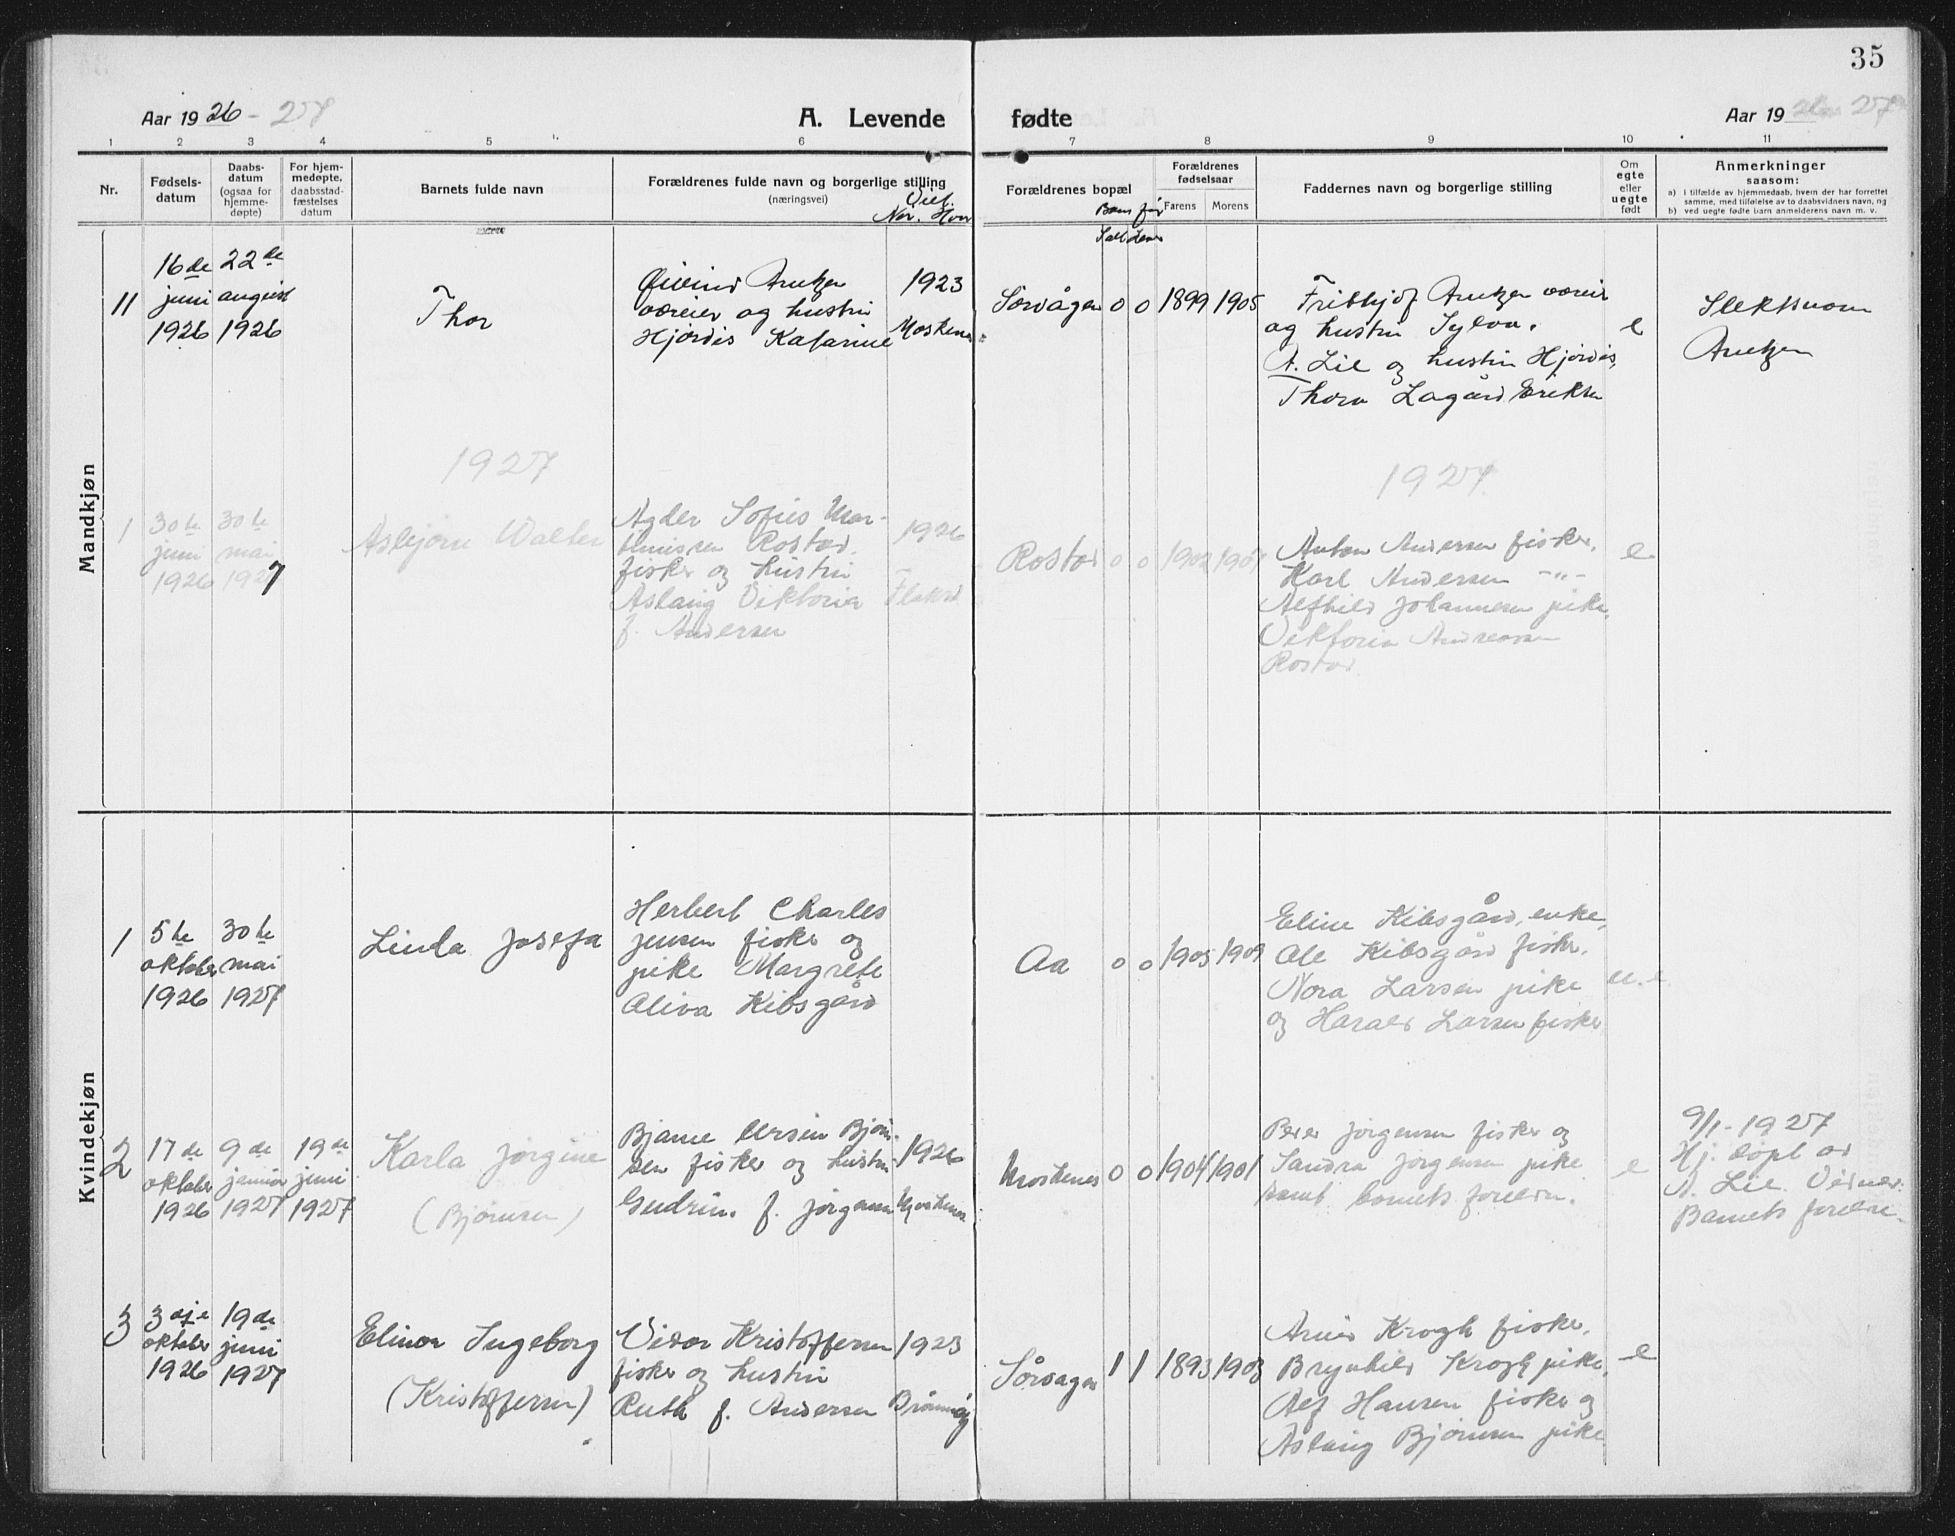 35
Aar 1926 - 27
A. Levende
fødte
Aar 19 27
1 2 3 4 5 6 7 8 9 10 11
Nr.
Fødsels-
datum
Daabs-
datum
(ogsaa for
hjemme-
døpte)
For hjem-
medøpte,
daabsstad-
fæstelses
datum
Barnets fulde navn
Forældrenes fulde navn og borgerlige stilling
(næringsvei)
Viet.
Naar. Hvor
Forældrenes bopæl
Barn før
Forældrenes
fødselsaar
Farens Morens
Faddernes navn og borgerlige stilling
Om
egte
eller
uegte
født
Anmerkninger
saasom:
a) i tilfælde av hjemmedaab, hvem der har forrettet
samme, med tilføielse av to daabsvidners navn, og
b) ved uegte fødte barn anmelderens navn m. v.
Mandkjøn
11
16de
juni
1926
22de
august
1926
Thor
Øivind Arntzen
væreier og hustru
Hjørdis Katarine
1923
Moskenes
Sørvågen
0 0
1899 1905
Frithjof Arntzen væreier
og hustru Sylva.
A. Lie og hustru Hjørdis,
Thora Lagård Eriksen
e
Slektsnavn
Arntzen
1927
1927
1
30te
juni
1926
30te
mai
1927
Asbjørn Walter
Agder Sofus Mar-
tinussen Rostad.
fisker og hustru
Aslaug Viktoria
f. Andersen
1926
Flakstd
Rostad
0 0
1902 1907
Anton Andersen fisker.
Karl Andersen -"-
Alfhild Johannesen pike,
Viktoria Andreassen
Rostad
e
Kvindekjøn
1
5te
oktober
1926
30te
mai
1927
Linda Josefa
Herbert Charles
Jensen fisker og
pike Margrete
Oliva Kibsgård
Aa
0 0
1905 1909
Eline Kibsgård, enke,
Ole Kibsgård fisker.
Nora Larsen pike
og Harald Larsen fisker
u.e.
2
17de
oktober
1926
9de
januar
1927
19de
juni
1927
Karla Jørgine
(Bjørnsen)
Bjarne Ursin Bjørn-
sen fisker og hustru
Gudrun. f. Jørgensen
1926
Moskenes
Moskenes
0 0
1904 1901
Peder Jørgensen fisker og
Sandra Jørgensen pike
samt barnets foreldre.
e
9/1-1927
Hj. døpt av
A. Lie. Vidner:
Barnets foreldre.
3
3dje
oktober
1926
19de
juni
1927
Elinor Ingeborg
(Kristoffersen)
Vidar Kristoffersen
fisker og hustru
Ruth f. Andersen
1923
Sørvagen
1 1
1893 1903
Arnid Krogh fisker,
Brynhild Krogh pike,
Alf Hansen fisker og
Aslaug Bjørnsen pike
e